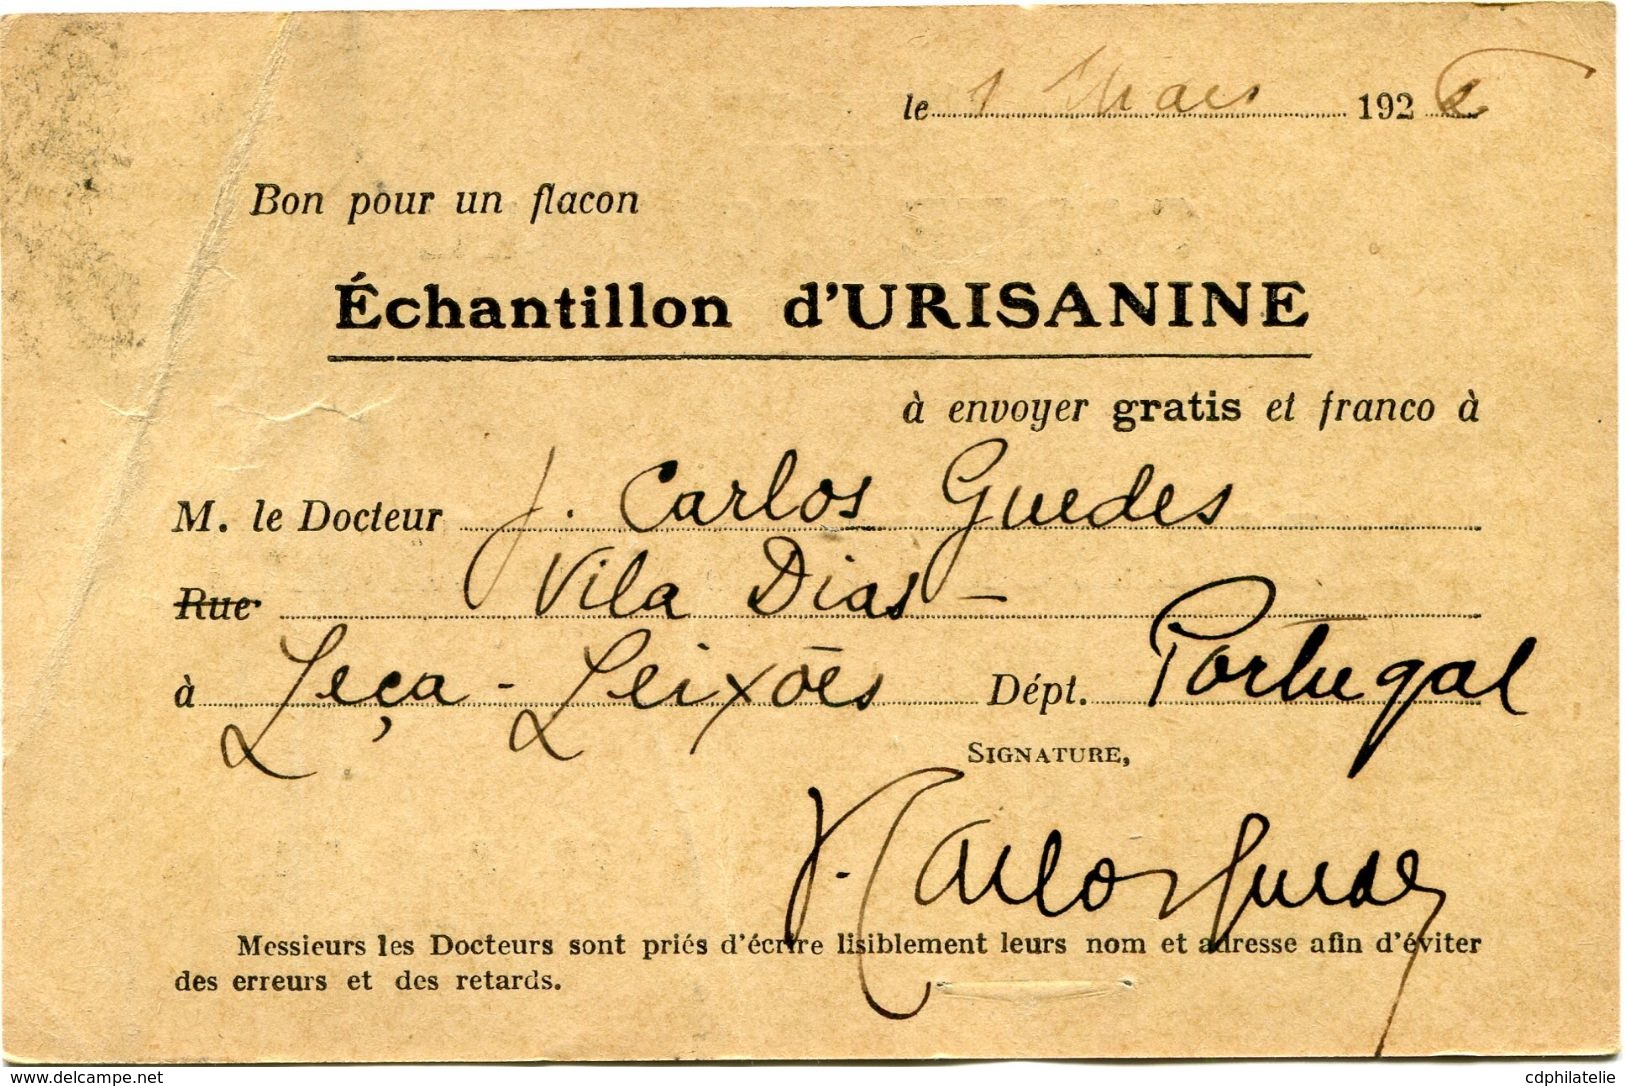 le 1 Mars 192
Bon pour un flacon
Échantillon d'URISANINE
à envoyer gratis et franco à
M. le Docteur J. Carlos Guedes
Rue Vila Dias -
à Leça - Leixões Dépt. Portugal
SIGNATURE,
J. Carlos Guedes
Messieurs les Docteurs sont priés d'écrire lisiblement leurs nom et adresse afin d'éviter
des erreurs et des retards.
www.delcampe.net
cdphilatelie